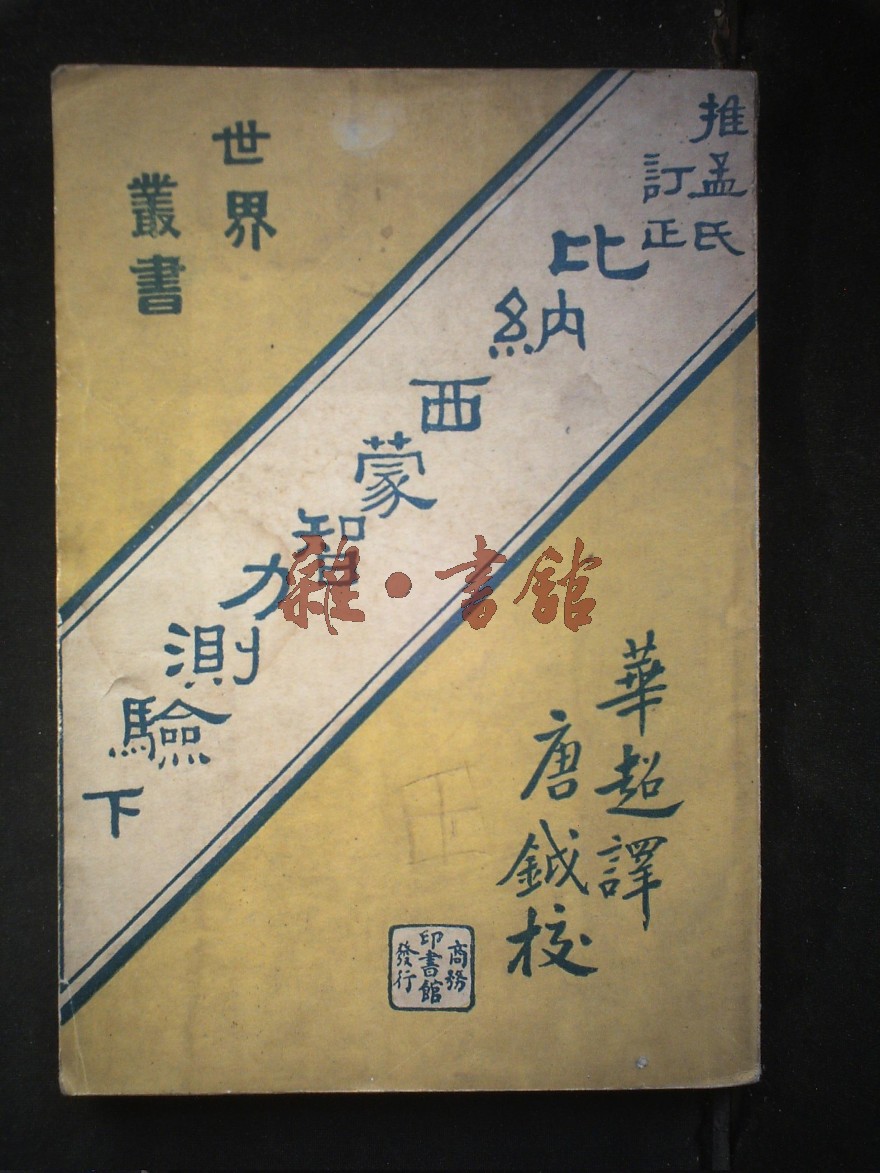 世界
叢書
推孟氏
訂正
比納西蒙智力測驗
下
華超譯
唐鉞校
商務
印書館
發行
雜·書館